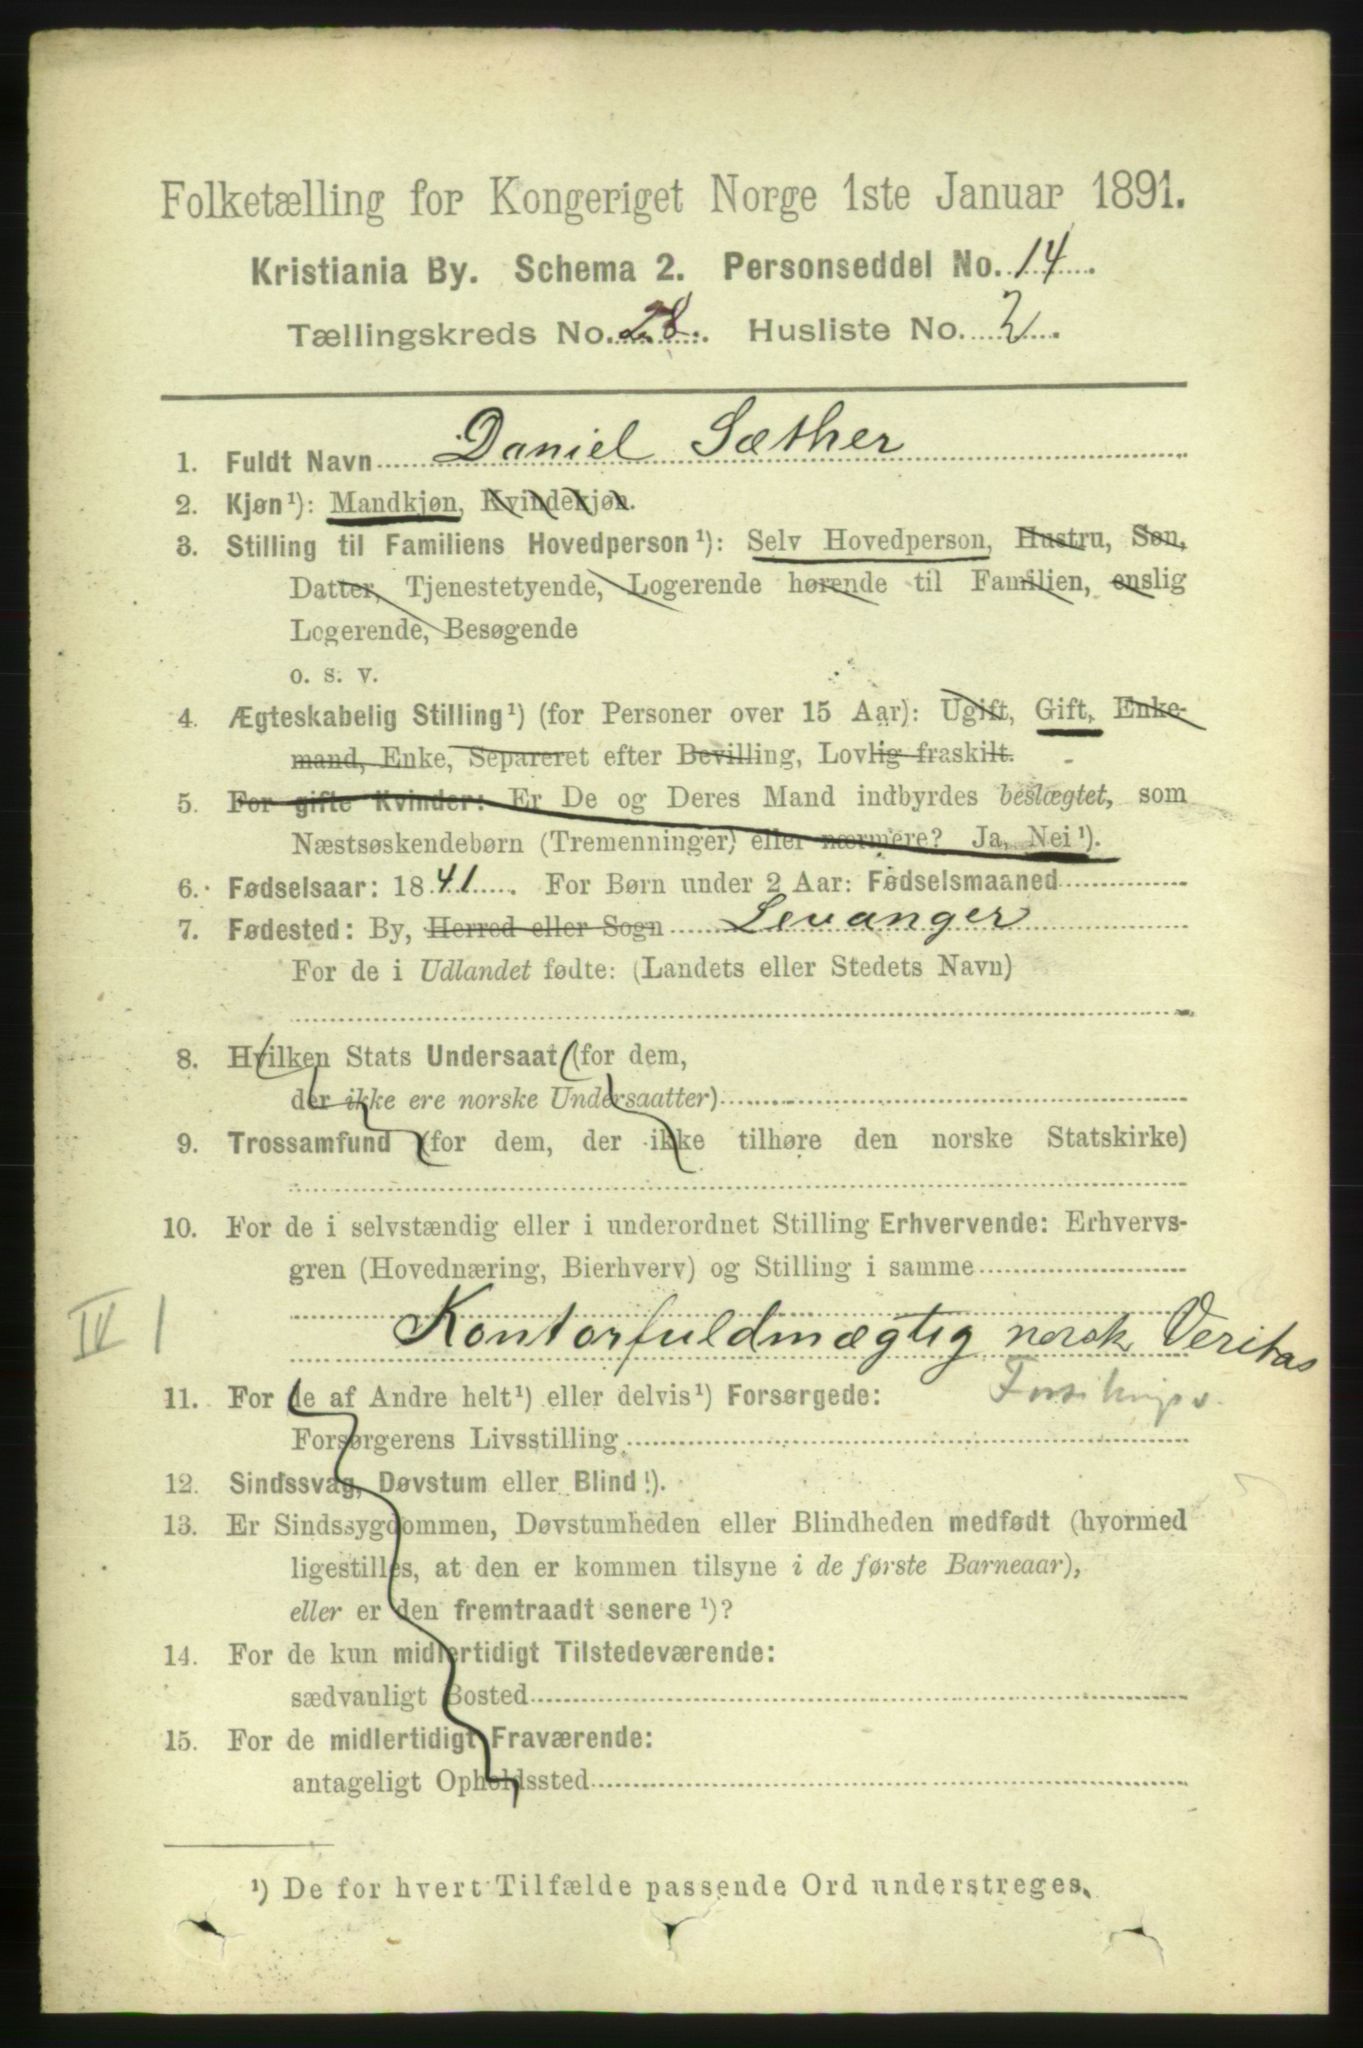 Folketælling for Kongeriget Norge 1ste Januar 1891.
Kristiania By. Schema 2. Personseddel No. 14.
Tællingskreds No. 28. Husliste No. 2.
1. Fuldt Navn Daniel Sæther
2. Kjøn¹): Mandkjøn, Kvindekjøn.
3. Stilling til Familiens Hovedperson¹): Selv Hovedperson, Hustru, Søn,
Datter, Tjenestetyende, Logerende hørende til Familien, enslig
Logerende, Besøgende
o. s. v.
4. Ægteskabelig Stilling¹) (for Personer over 15 Aar): Ugift, Gift, Enke-
mand, Enke, Separeret efter Bevilling, Lovlig fraskilt.
5. For gifte Kvinder: Er De og Deres Mand indbyrdes beslægtet, som
Næstsøskendebørn (Tremenninger) eller nærmere? Ja, Nei¹).
6. Fødselsaar: 1841. For Børn under 2 Aar: Fødselsmaaned
7. Fødested: By, Herred eller Sogn Levanger
For de i Udlandet fødte: (Landets eller Stedets Navn)
8. Hvilken Stats Undersaat (for dem,
der ikke ere norske Undersaatter)
9. Trossamfund (for dem, der ikke tilhøre den norske Statskirke)
10. For de i selvstændig eller i underordnet Stilling Erhvervende: Erhvervs-
gren (Hovednæring, Bierhverv) og Stilling i samme
IV 1
Kontorfuldmægtig norsk Veritas
11. For de af Andre helt¹) eller delvis¹) Forsørgede:
Forsørgerens Livsstilling
12. Sindssvag, Døvstum eller Blind¹).
13. Er Sindssygdommen, Døvstumheden eller Blindheden medfødt (hvormed
ligestilles, at den er kommen tilsyne i de første Barneaar),
eller er den fremtraadt senere¹)?
14. For de kun midlertidigt Tilstedeværende:
sædvanligt Bosted
15. For de midlertidigt Fraværende:
antageligt Opholdssted
¹) De for hvert Tilfælde passende Ord understreges.